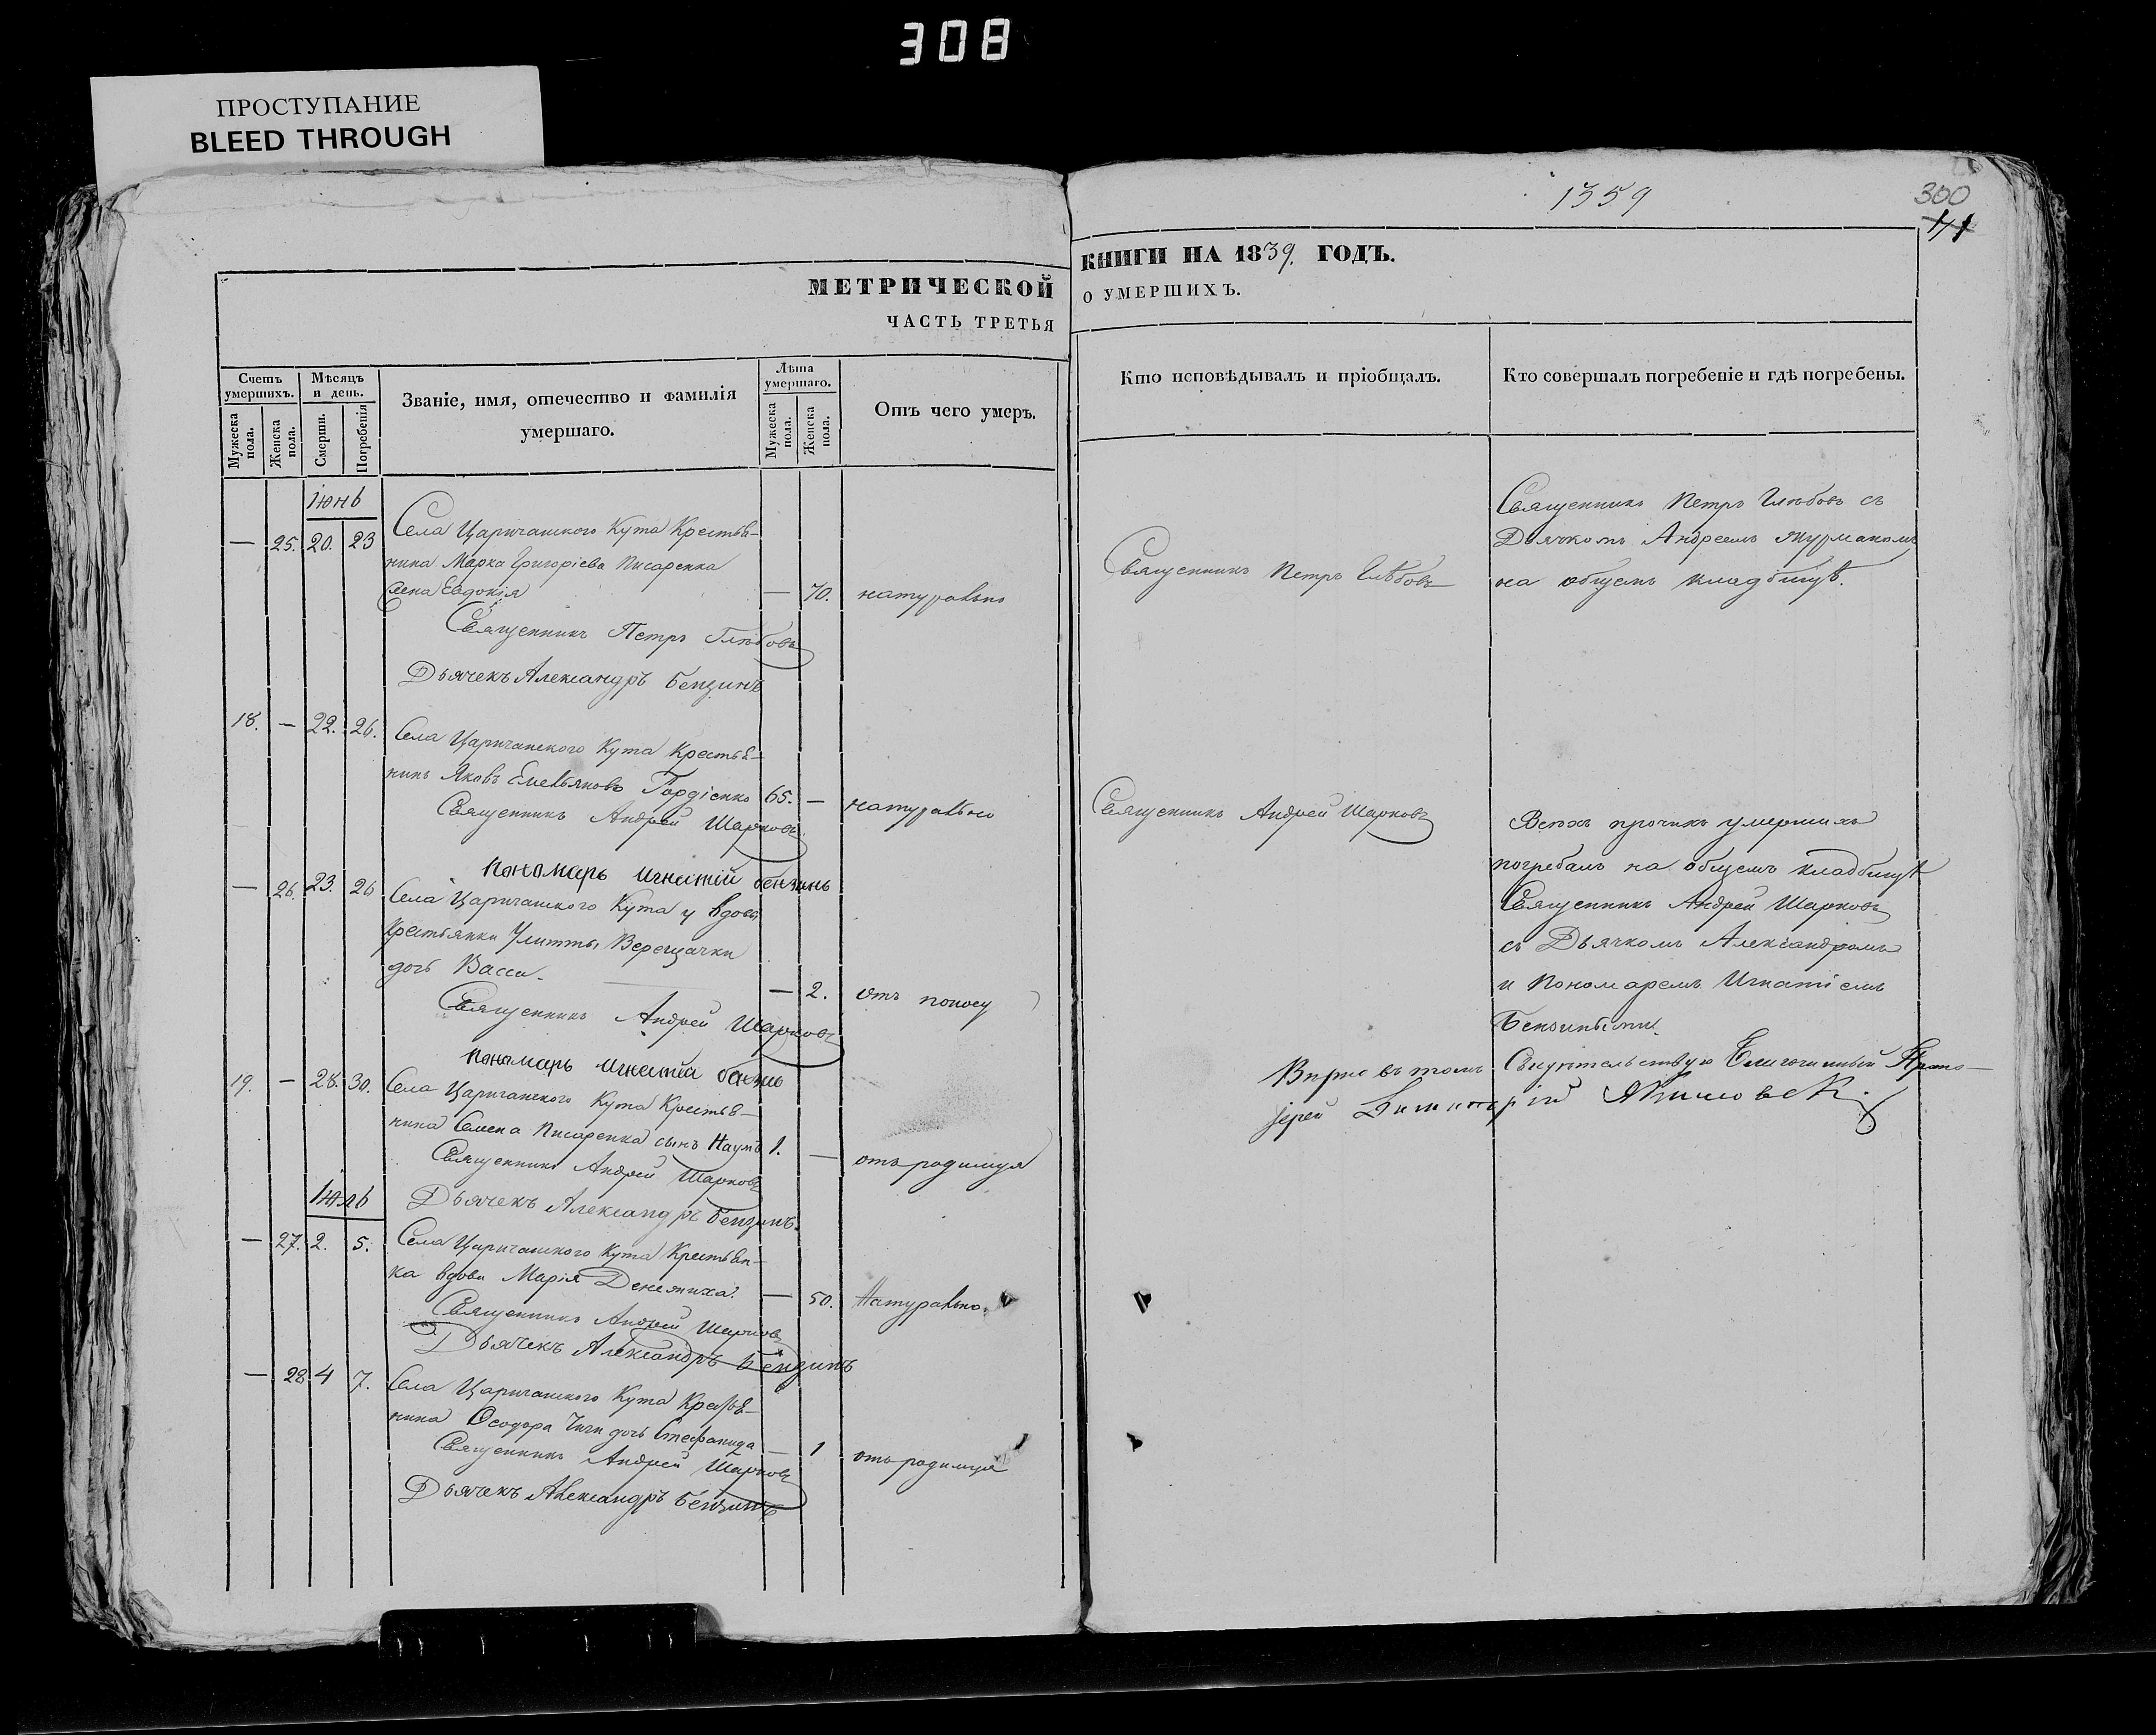 308
ПРОСТУПАНИЕ
BLEED THROUGH
1359
300
МЕТРИЧЕСКОЙ
ЧАСТЬ ТРЕТЬЯ
КНИГИ НА 1839. ГОДЪ.
О УМЕРШИХЪ.
Счетъ умершихъ.
Мѣсяцъ и день.
Званіе, имя, отечество и фамилія
умершаго.
Лѣта умершаго.
Отъ чего умеръ.
Мужеска пола.
Женска пола.
Смерти.
Погребенія
Мужеска пола.
Женска пола.
Кто исповѣдывалъ и пріобщалъ.
Кто совершалъ погребеніе и гдѣ погребены.
Іюнь
— 25. 20. 23 Села Царичанского Кута Крестья-
нина Марка Григоріева Писаренка
Евдокія — 70. натурально
Священникъ Петръ Глѣбовъ
Дьячекъ Александръ Бензинъ
18. — 22. 26. Села Царичанского Кута Крестья-
нинъ Яковъ Емельяновъ Гордіенко 65. — натурально
Священникъ Андрей Шарковъ
Пономарь Игнатій Бензинъ
— 26. 23. 26 Села Царичанского Кута у вдовы
крестьянки Улитты Верещачки
дочь Васса. — 2. отъ поносу
Священникъ Андрей Шарковъ
Пономарь Игнатій Бензинъ
19. — 28. 30. Села Царичанского Кута Крестья-
нина Семена Писаренка сынъ Наумъ 1. — отъ родимца
Священникъ Андрей Шарковъ
Дьячекъ Александръ Бензинъ.
Іюль
— 27. 2. 5. Села Царичанского Кута Крестьян-
ка вдова Марія — 50. Натурально.
Священникъ Андрей Шарковъ
Дьячекъ Александръ Бензинъ
— 28 4 7. Села Царичанского Кута Крестья-
нина Ѳеодора Чиги дочь Стефанида — 1 отъ родимца
Священникъ Андрей Шарковъ
Дьячекъ Александръ Бензинъ
Священникъ Петръ Глѣбовъ
Священникъ Андрей Шарковъ
Священникъ Петръ Глѣбовъ съ
Дьячкомъ Андреемъ
на общемъ кладбищѣ.
Всѣхъ прочихъ умершихъ
погребалъ на общемъ кладбищѣ
Священникъ Андрей Шарковъ
съ Дьячкомъ Александромъ
и Пономаремъ Игнатіемъ
Бензиными.
въ томъ Свидѣтельствую Благочинный Прото-
іерей